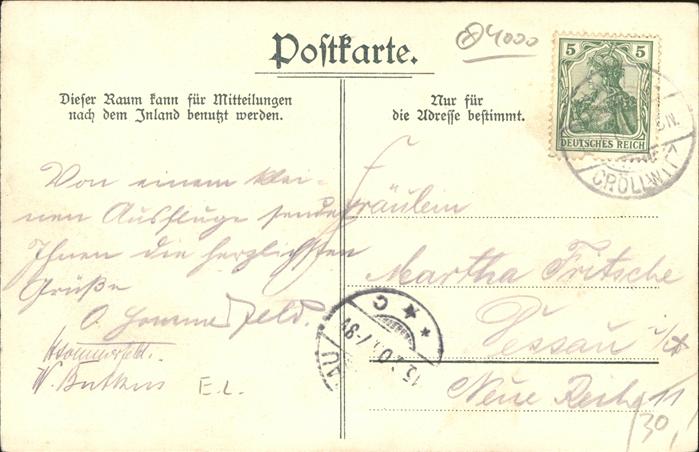 Postkarte.
4000
5 5
DEUTSCHES REICH
CRÖLLWITZ
Dieser Raum kann für Mitteilungen
nach dem Inland benutzt werden.
Nur für
die Adresse bestimmt.
Von einem klei-
nen Ausfluge sende
Ihnen die herzlichsten
Grüße
O. Sommerfeld.
W. Butkus E. L.
Fräulein
Martha Fritsche
Dessau
Neue Reihe 11
30
AU
C